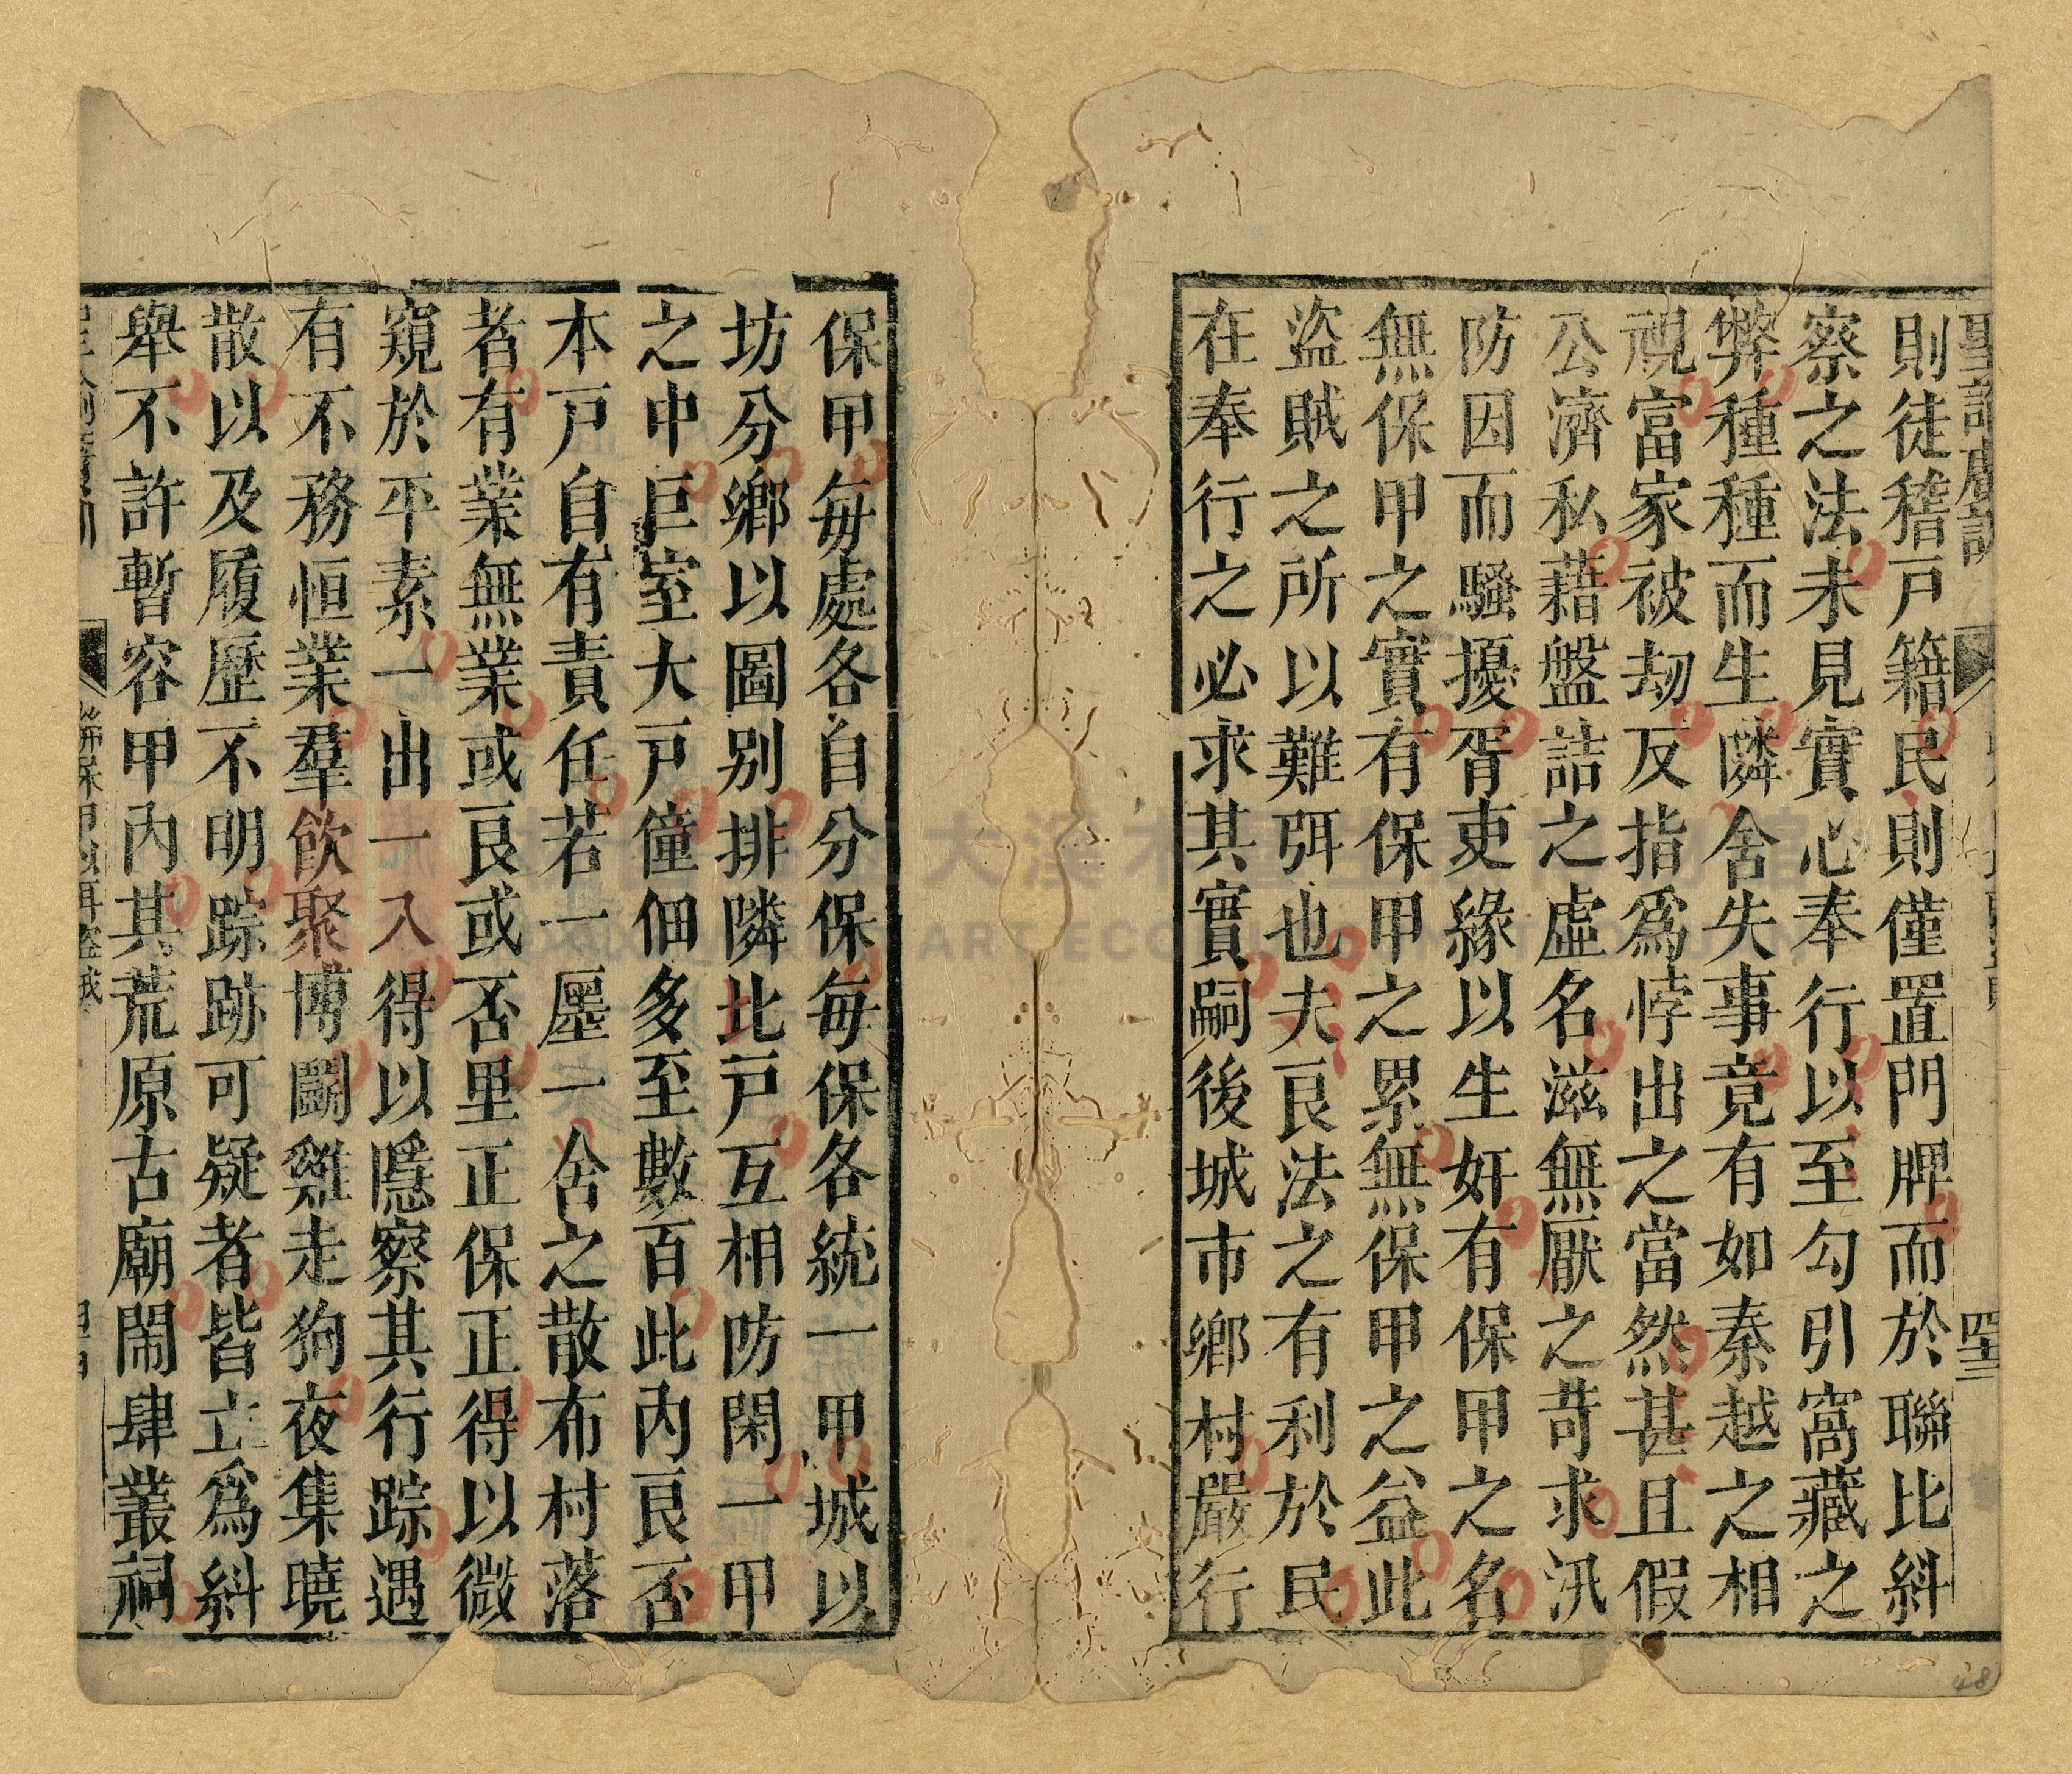 聖諭廣訓
則徒稽戸籍民則僅置門牌而於聯比糾
察之法未見實心奉行以至勾引窩藏之
弊種種而生隣舍失事竟有如秦越之相
視富家被刼反指爲悖出之當然甚且假
公濟私藉盤詰之虛名滋無厭之苛求汛
防因而騷擾胥吏緣以生奸有保甲之名
無保甲之實有保甲之累無保甲之益此
盜賊之所以難弭也夫良法之有利於民
在奉行之必求其實嗣後城市鄉村嚴行
保甲每處各自分保每保各統一甲城以
坊分鄉以圖別排隣比戸互相防閑一甲
之中巨室大戸僮佃多至數百此內良否
本戸自有責任若一廛一舍之散布村落
者有業無業或良或否里正保正得以微
窺於平素一出一入得以隱察其行踪遇
有不務恒業羣飲聚博鬭雞走狗夜集曉
散以及履歷不明踪跡可疑者皆立爲糾
舉不許暫容甲內其荒原古廟鬧肆叢祠
聯保甲以弭盜賊
48